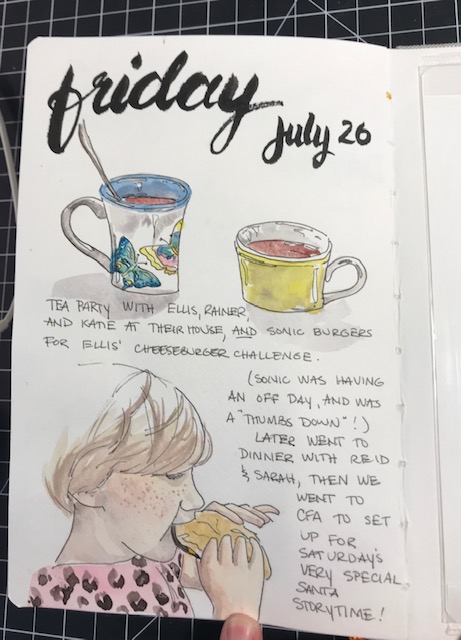 friday
july 26
TEA PARTY WITH ELLIS, RAINER,
AND KATIE AT THEIR HOUSE, AND SONIC BURGERS
FOR ELLIS' CHEESEBURGER CHALLENGE.
(SONIC WAS HAVING
AN OFF DAY, AND WAS
A "THUMBS DOWN"!)
LATER WENT TO
DINNER WITH REID
& SARAH, THEN WE
WENT TO
CFA TO SET
UP FOR
SATURDAY'S
VERY SPECIAL
SANTA
STORYTIME!